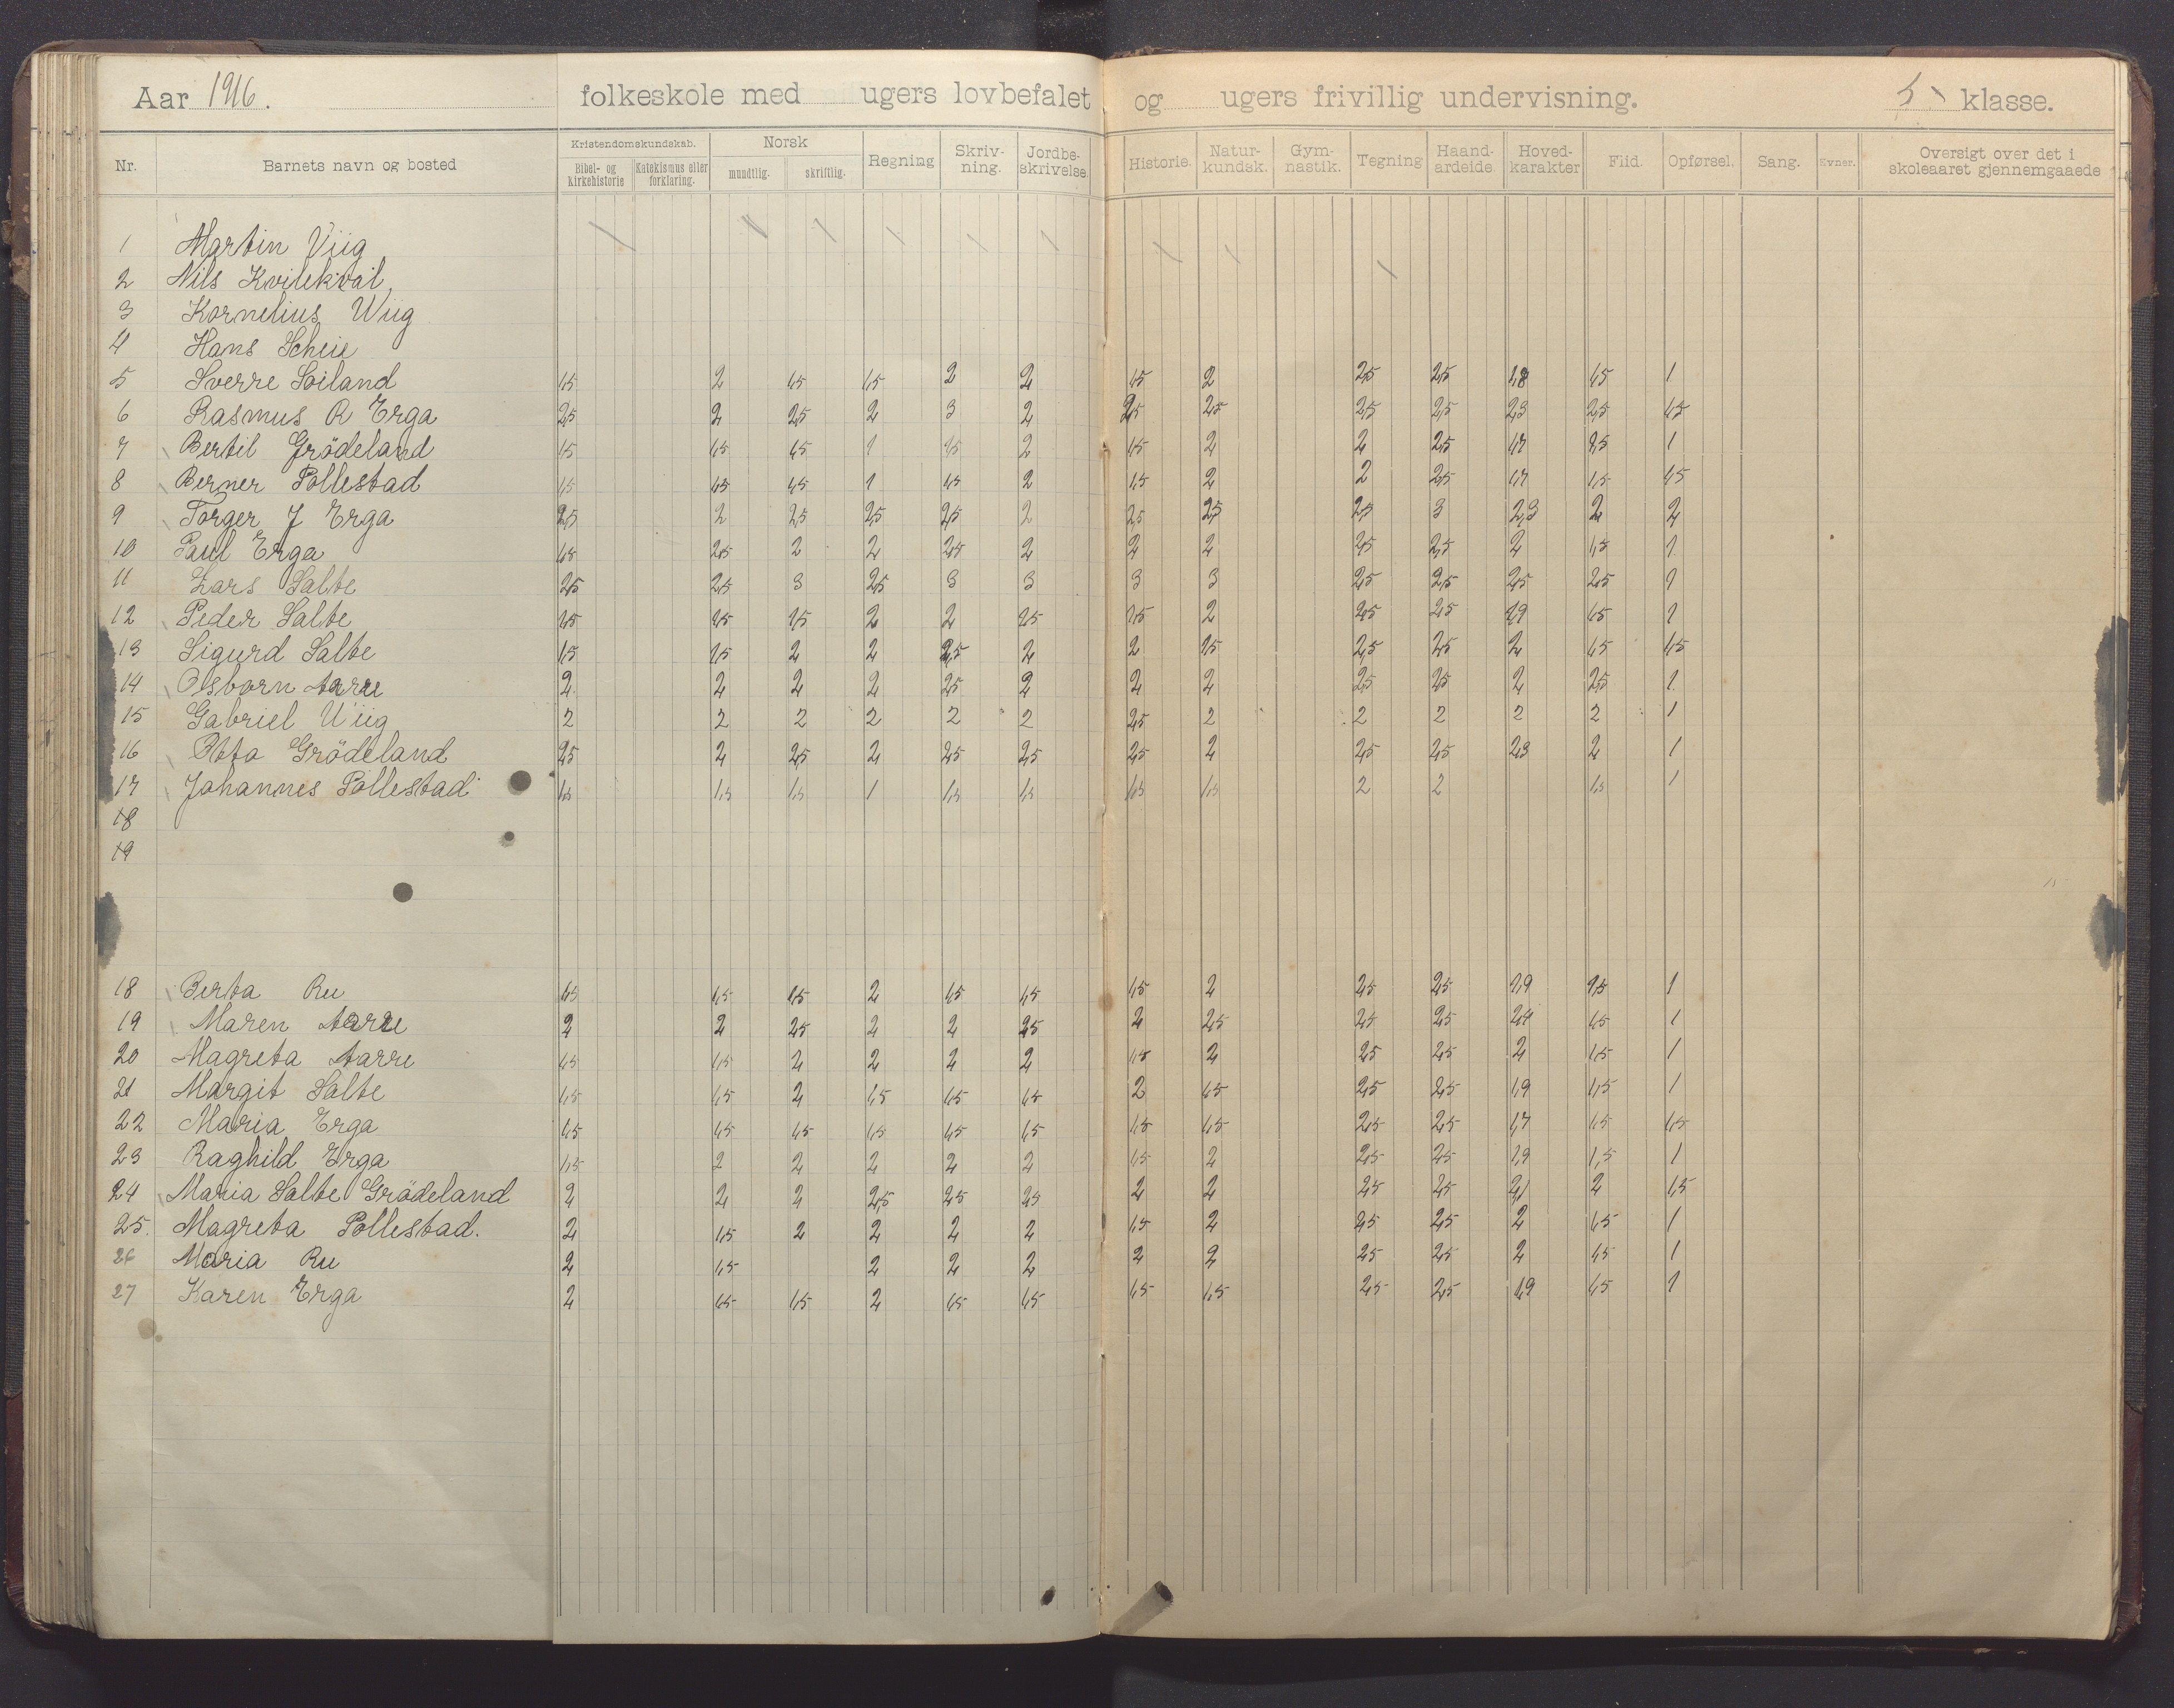 Aar 1916. folkeskole med ugers lovbefalet og ugers frivillig undervisning. 5 klasse.
Nr. Barnets navn og bosted Kristendomskundskab. Bibel- og kirkehistorie Katekismus eller forklaring. Norsk mundtlig. skriftlig. Regning Skriv-ning. Jordbe-skrivelse. Historie. Natur-kundsk. Gym-nastik. Tegning Haand-ardeide Hoved-karakter Flid. Opførsel. Sang. Evner. Oversigt over det i skoleaaret gjennemgaaede
1 Martin Viig
2 Nils Kvilekval
3 Kornelius Wiig
4 Hans Scheie
5 Sverre Soiland 1,5 2 1,5 1,5 2 2 1,5 2 2,5 2,5 1,8 1,5 1
6 Rasmus R Erga 2,5 2 2,5 2 3 2 2,5 2,5 2,5 2,5 2,3 2,5 1,5
7 Bertil Grödeland 1,5 1,5 1,5 1 1,5 2 1,5 2 2 2,5 1,7 1,5 1
8 Berner Pollestad 1,5 1,5 1,5 1 1,5 2 1,5 2 2 2,5 1,7 1,5 1,5
9 Torger J Erga 2,5 2 2,5 2,5 2,5 2 2,5 2,5 2,5 3 2,3 2 2
10 Paul Erga 1,5 2,5 2 2 2,5 2 2 2 2,5 2,5 2 1,5 1
11 Lars Salte 2,5 2,5 3 2,5 3 3 3 3 2,5 2,5 2,5 2,5 1
12 Peder Salte 1,5 1,5 1,5 2 2 1,5 1,5 2 2,5 2,5 1,9 1,5 1
13 Sigurd Salte 1,5 1,5 2 2 2,5 2 2 1,5 2,5 2,5 2 1,5 1,5
14 Osborn Aarre 2 2 2 2 2,5 2 2 2 2,5 2,5 2 2,5 1
15 Gabriel Wiig 2 2 2 2 2 2 2,5 2 2 2 2 2 1
16 Otto Grödeland 2,5 2 2,5 2 2,5 2,5 2,5 2 2,5 2,5 2,3 2 1
17 Johannes Pollestad 1,5 1,5 1,5 1 1,5 1,5 1,5 1,5 2 2 1,5 1
18
19
18 Berta Ru 1,5 1,5 1,5 2 1,5 1,5 1,5 2 2,5 2,5 1,9 1,5 1
19 Maren Aarre 2 2 2,5 2 2 2,5 2 2,5 2,5 2,5 2,1 1,5 1
20 Magreta Aarre 1,5 1,5 2 2 2 2 1,5 2 2,5 2,5 2 1,5 1
21 Margit Salte 1,5 1,5 2 1,5 1,5 1,5 2 1,5 2,5 2,5 1,9 1,5 1
22 Maria Erga 1,5 1,5 1,5 1,5 1,5 1,5 1,5 1,5 2,5 2,5 1,7 1,5 1,5
23 Raghild Erga 1,5 2 2 2 2 2 1,5 2 2,5 2,5 1,9 1,5 1
24 Maria Salte Grödeland 2 2 2 2,5 2,5 2,5 2 2 2,5 2,5 2,1 2 1,5
25. Magreta Pollestad. 2 1,5 2 2 2 2 1,5 2 2,5 2,5 2 1,5 1
26 Maria Ru 2 1,5 2 2 2 2 2 2,5 2,5 2 1,5 1
27 Karen Erga 2 1,5 1,5 2 1,5 1,5 1,5 1,5 2,5 2,5 1,9 1,5 1